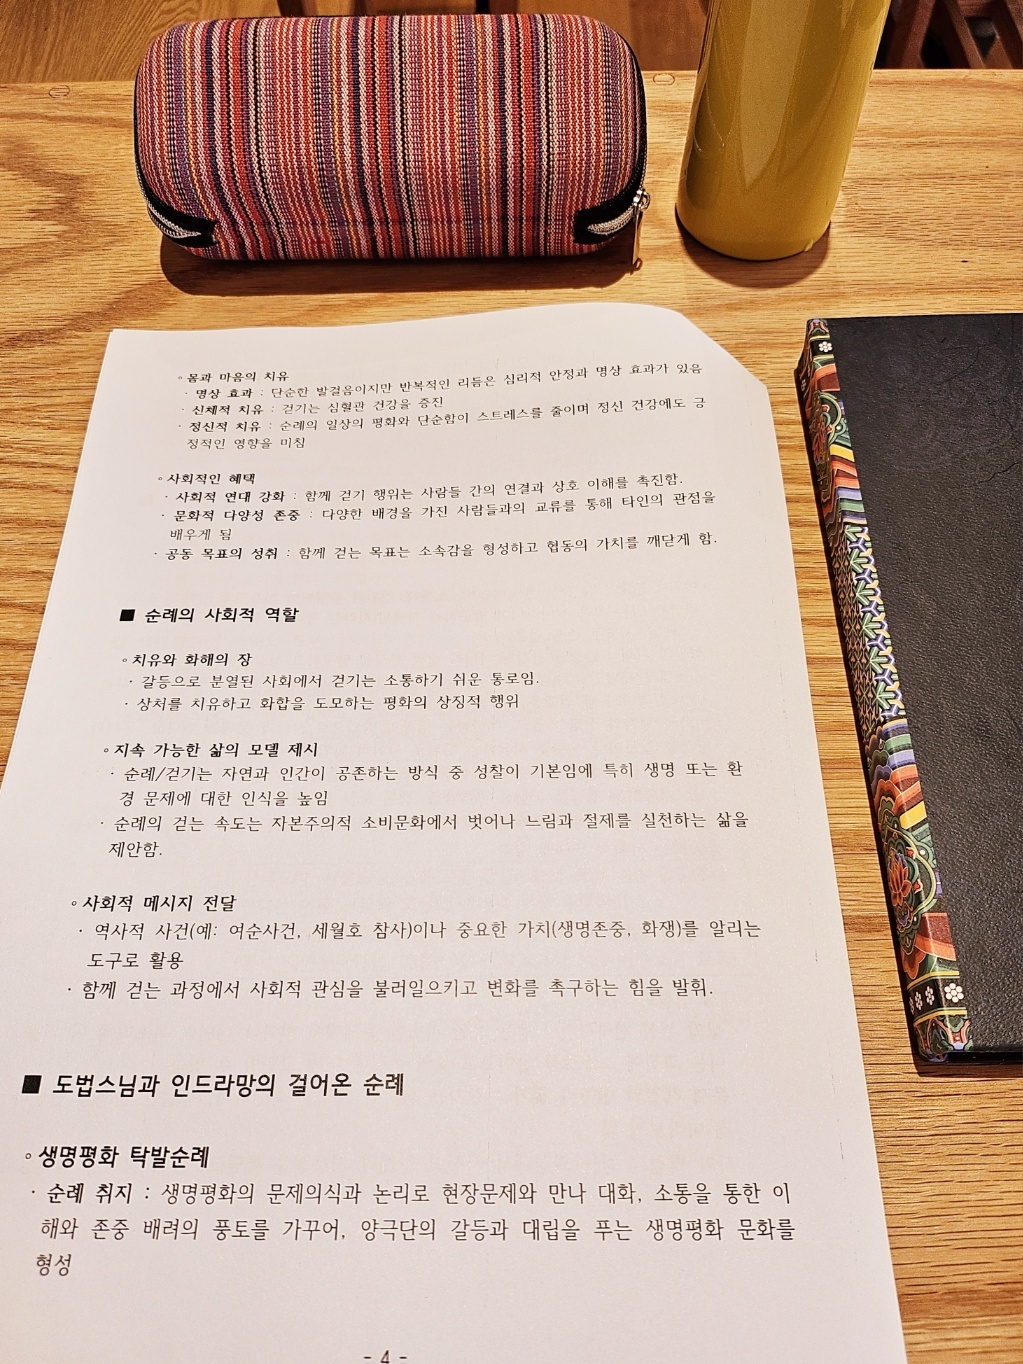 ◦ 몸과 마음의 치유
· 명상 효과 : 단순한 발걸음이지만 반복적인 리듬은 심리적 안정과 명상 효과가 있음
· 신체적 치유 : 걷기는 심혈관 건강을 증진
· 정신적 치유 : 순례의 일상의 평화와 단순함이 스트레스를 줄이며 정신 건강에도 긍
정적인 영향을 미침
◦ 사회적인 혜택
· 사회적 연대 강화 : 함께 걷기 행위는 사람들 간의 연결과 상호 이해를 촉진함.
· 문화적 다양성 존중 : 다양한 배경을 가진 사람들과의 교류를 통해 타인의 관점을
배우게 됨
· 공동 목표의 성취 : 함께 걷는 목표는 소속감을 형성하고 협동의 가치를 깨닫게 함.
■ 순례의 사회적 역할
◦ 치유와 화해의 장
· 갈등으로 분열된 사회에서 걷기는 소통하기 쉬운 통로임.
· 상처를 치유하고 화합을 도모하는 평화의 상징적 행위
◦ 지속 가능한 삶의 모델 제시
· 순례/걷기는 자연과 인간이 공존하는 방식 중 성찰이 기본임에 특히 생명 또는 환
경 문제에 대한 인식을 높임
· 순례의 걷는 속도는 자본주의적 소비문화에서 벗어나 느림과 절제를 실천하는 삶을
제안함.
◦ 사회적 메시지 전달
· 역사적 사건(예: 여순사건, 세월호 참사)이나 중요한 가치(생명존중, 화쟁)를 알리는
도구로 활용
· 함께 걷는 과정에서 사회적 관심을 불러일으키고 변화를 촉구하는 힘을 발휘.
■ 도법스님과 인드라망의 걸어온 순례
◦ 생명평화 탁발순례
· 순례 취지 : 생명평화의 문제의식과 논리로 현장문제와 만나 대화, 소통을 통한 이
해와 존중 배려의 풍토를 가꾸어, 양극단의 갈등과 대립을 푸는 생명평화 문화를
형성
- 4 -